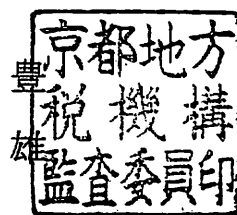 京都地方
税機構
監査委員印
豊雄